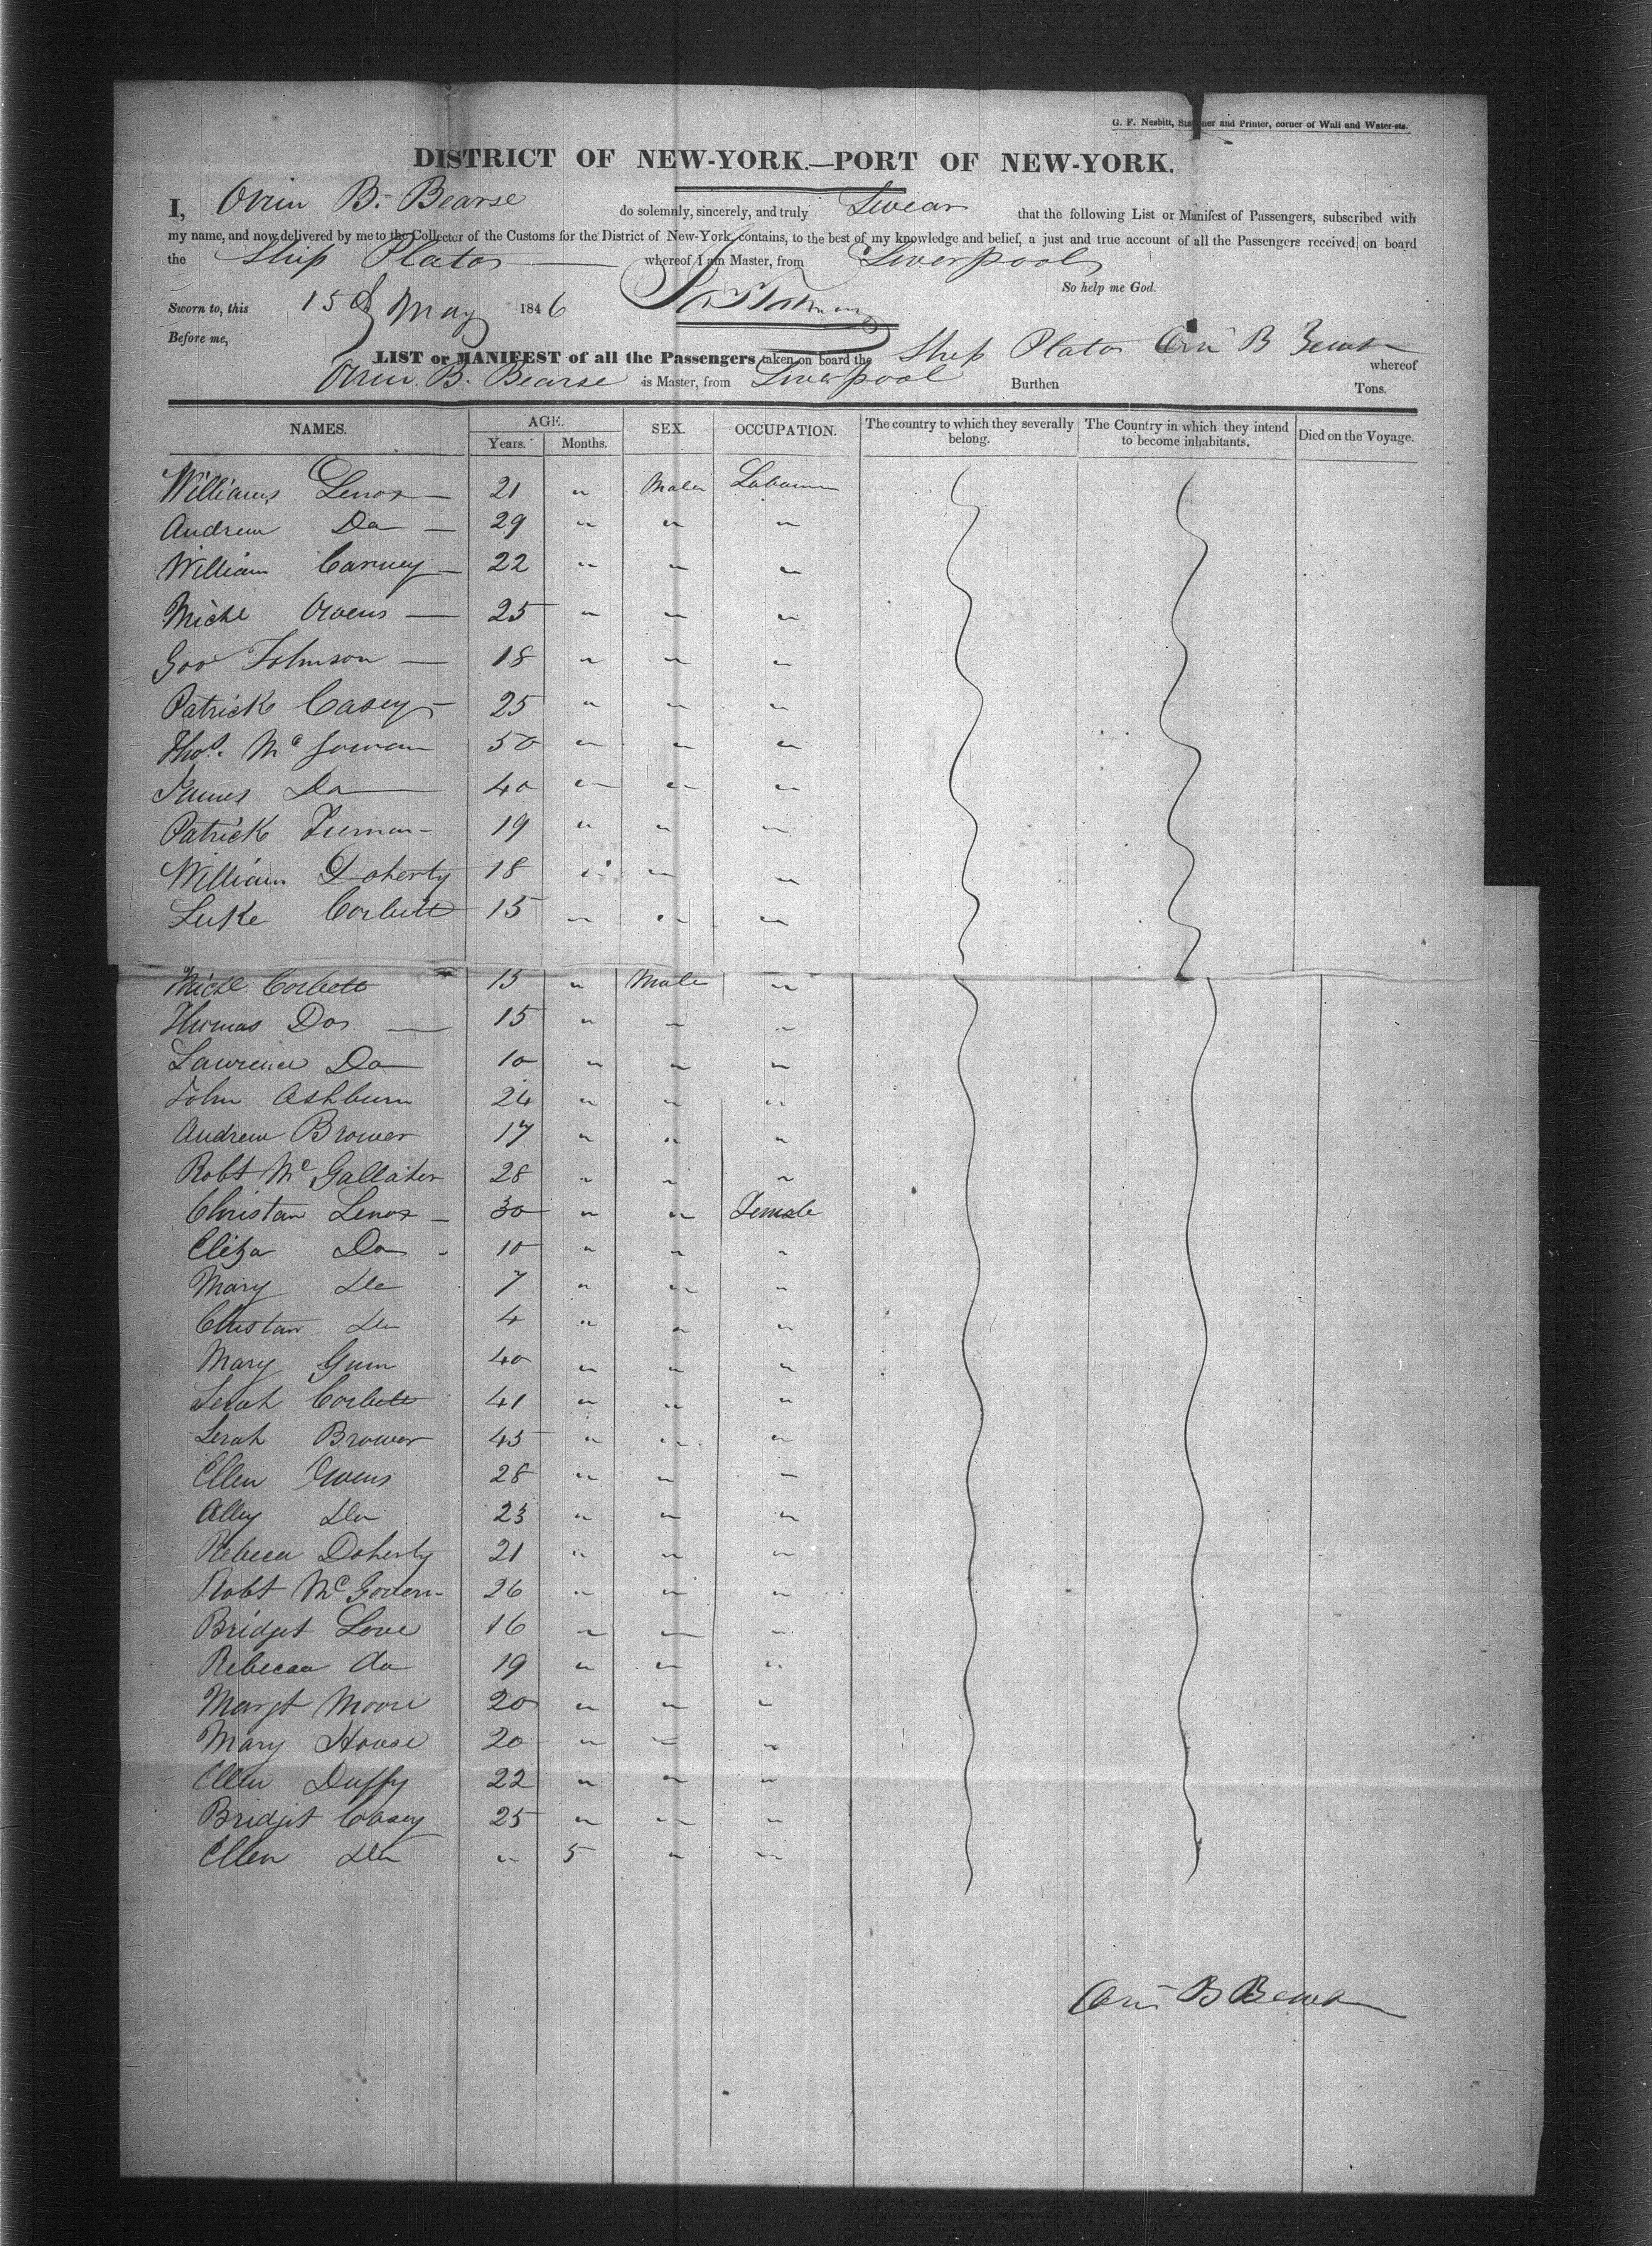 G. F. Nesbitt, Stationer and Printer, corner of Wall and Water-sts.
DISTRICT OF NEW-YORK.—PORT OF NEW-YORK.
I, Orrin B. Bearse do solemnly, sincerely, and truly Swear that the following List or Manifest of Passengers, subscribed with
my name, and now delivered by me to the Collector of the Customs for the District of New-York, contains, to the best of my knowledge and belief, a just and true account of all the Passengers received on board
the Ship Plato whereof I am Master, from Liverpool
So help me God.
Sworn to, this 15th May 1846
Before me,
LIST or MANIFEST of all the Passengers taken on board the Ship Plato B whereof
Orrin B. Bearse is Master, from Liverpool Burthen Tons.
NAMES. AGE. Years. Months. SEX. OCCUPATION. The country to which they severally belong. The Country in which they intend to become inhabitants. Died on the Voyage.
Williams Lenox — 21 " Male
Andrew Do — 29 " " "
William Carney — 22 " " "
Michl Owens — 25 " " "
Geo Johnson — 18 " " "
Patrick Casey — 25 " " "
Thos. Mc Gowan 50 " " "
James Do — 40 " " "
Patrick — 19 " " "
William Doherty 18 " " "
Luke Corbett 15 " " "
Michl Corbett 15 " Male "
Thomas Do — 15 " " "
Lawrence Do 10 " " "
John Ashburn 24 " " "
Andrew Brower 17 " " "
Robt Mc Gallaher 28 " " "
Christan Lenox — 30 " " Female
Eliza Do - 10 " " "
Mary Do 7 " " "
Christan Do 4 " " "
Mary 40 " " "
Serah Corbett 41 " " "
Serah Brower 45 " " "
Ellen Owens 28 " " "
Alley Do 23 " " "
Rebeca Doherty 21 " " "
Robt Mc Govern 26 " " "
Bridget Love 16 " " "
Rebecca do 19 " " "
Margt Moore 20 " " "
Mary House 20 " " "
Ellen Duffy 22 " " "
Bridget Casey 25 " " "
Ellen Do " 5 " "
B